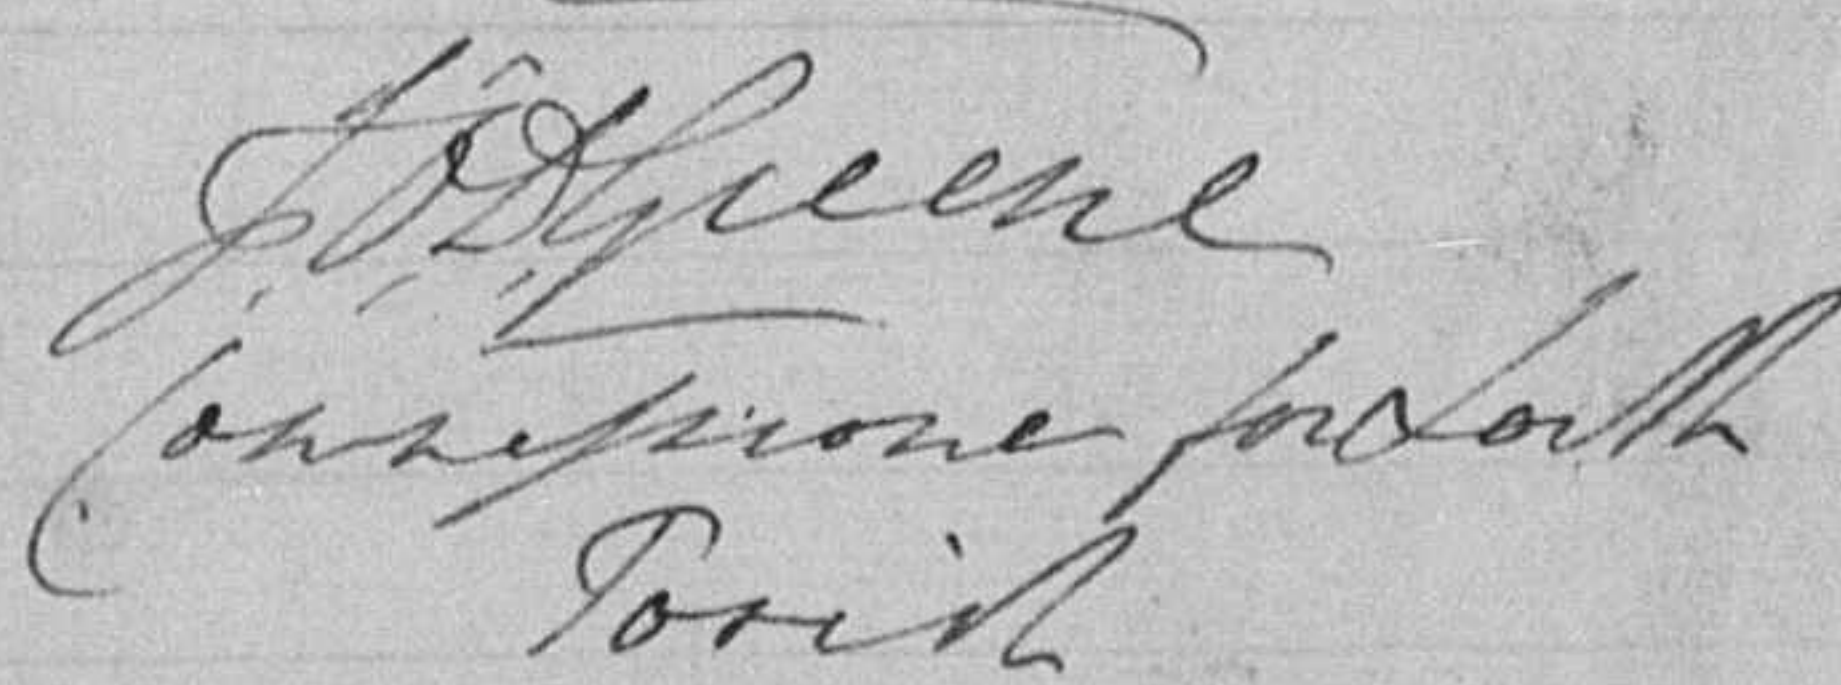 J. O. D. Greene
Commissioner for South
Parish